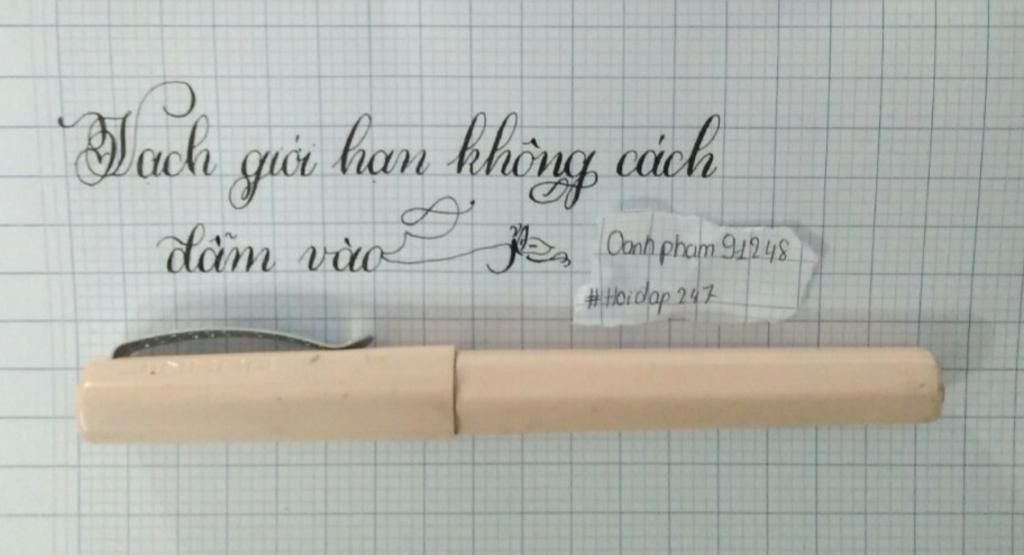 Vach giới han không cách
dẫm vào
Oanhpham91248
#Hoidap247